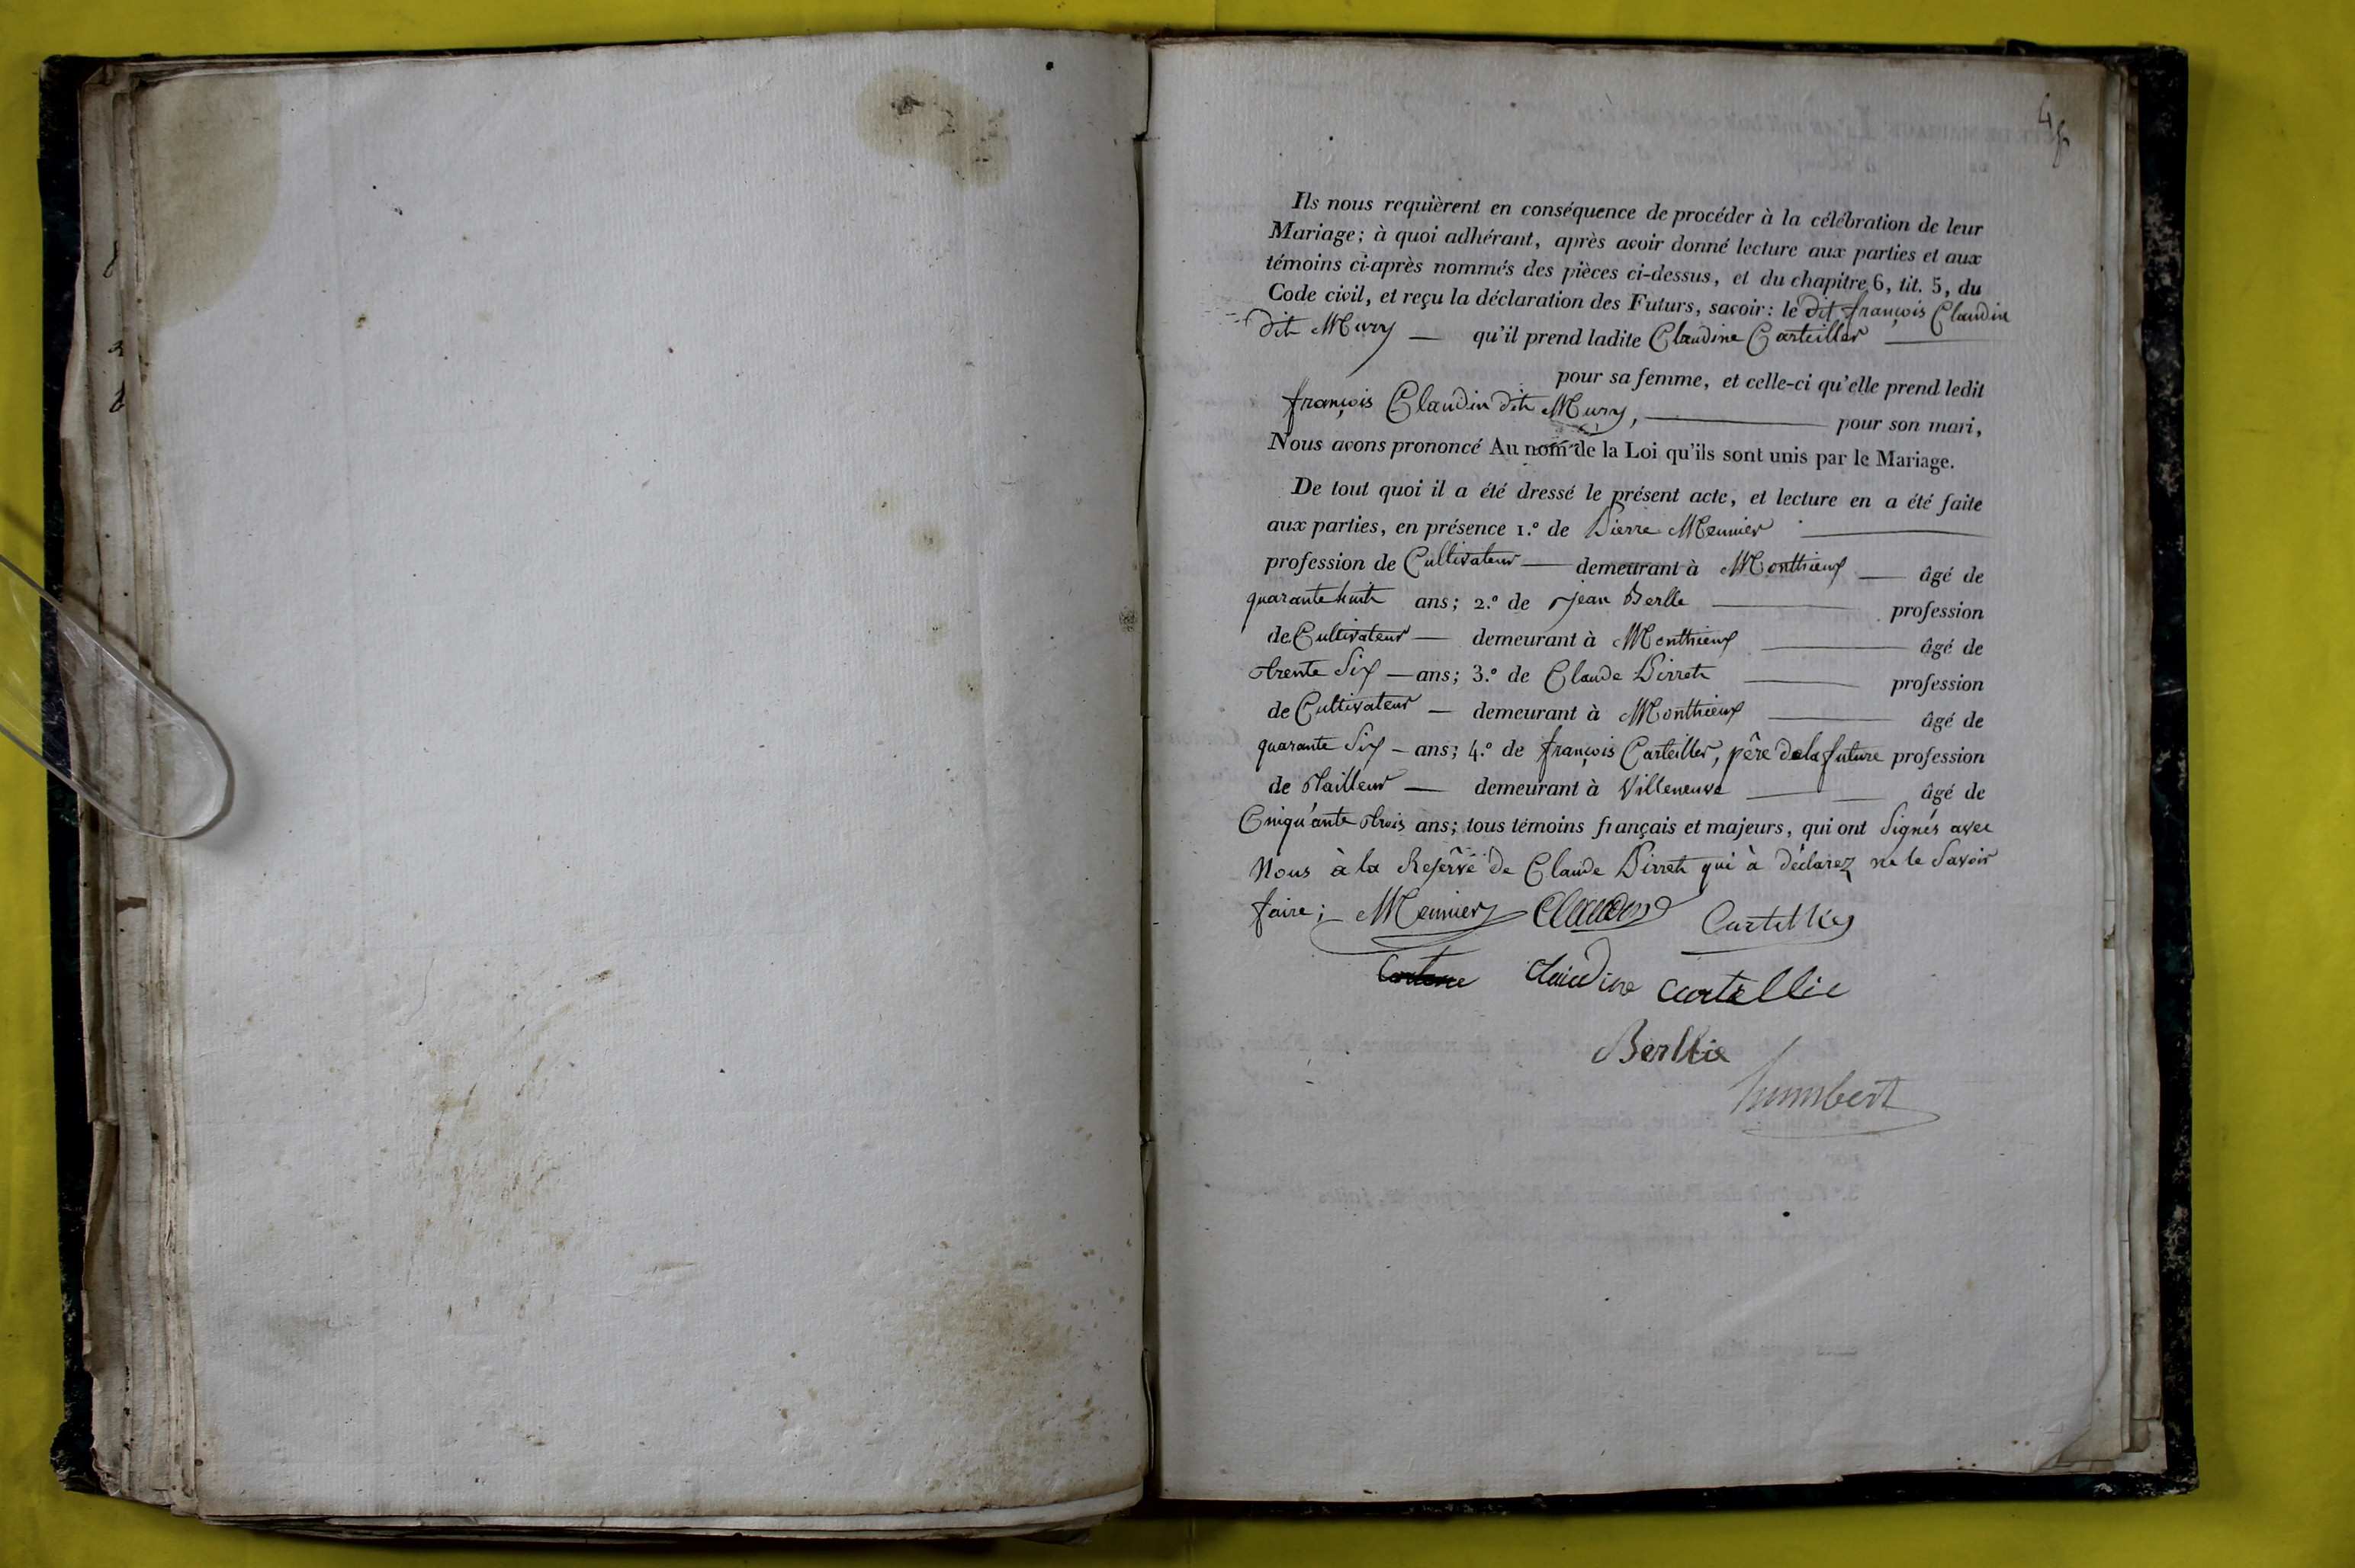 4
Ils nous requièrent en conséquence de procéder à la célébration de leur
Mariage; à quoi adhérant, après avoir donné lecture aux parties et aux
témoins ci-après nommés des pièces ci-dessus, et du chapitre 6, tit. 5, du
Code civil, et reçu la déclaration des Futurs, savoir: le dit françois Claudin
dit Mury — qu'il prend ladite Claudine Carteiller —
pour sa femme, et celle-ci qu'elle prend ledit
françois Claudin dit Mury, — pour son mari,
Nous avons prononcé Au nom de la Loi qu'ils sont unis par le Mariage.
De tout quoi il a été dressé le présent acte, et lecture en a été faite
aux parties, en présence 1.º de Pierre Meunier —
profession de Cultivateur — demeurant à Monthieux — âgé de
quarante huit ans; 2.º de Jean Berlle — profession
de Cultivateur — demeurant à Monthieux — âgé de
trente Six — ans; 3.º de Claude Pirret — profession
de Cultivateur — demeurant à Monthieux — âgé de
quarante Six — ans; 4.º de françois Carteiller, père de la future profession
de Tailleur — demeurant à Villeneuve — âgé de
Cinqu'ante trois ans; tous témoins français et majeurs, qui ont Signés avec
Nous à la Reserve de Claude Pirret qui à déclarez ne le Savoir
faire; Meunier Claudin Cartellier
Claudine cartellie
Berllie
humbert